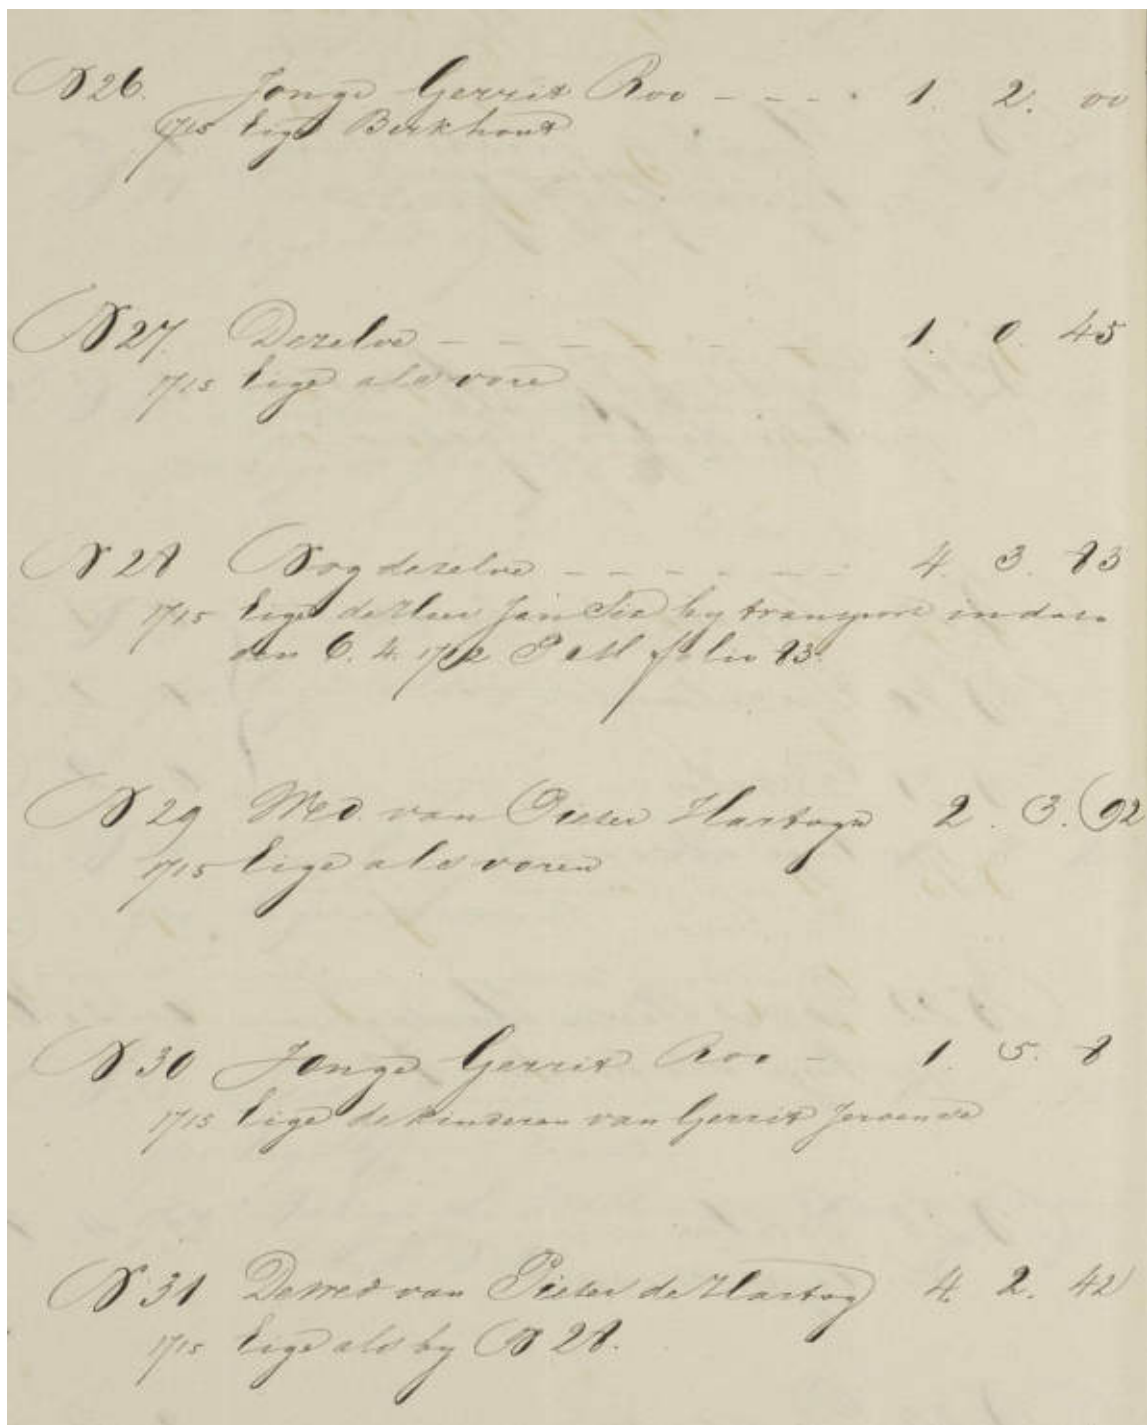 N 26. Jonge Gerrit Roo - - - . 1. 2. 00
1715 Eige Berkhout
N 27. Dezelve - - - - - - - 1. 0. 45
1715 Eige als vore
N 28 Nog dezelve - - - - - - - 4. 3. 83
1715 Eige de Heer Jan by transport
den 6. 4. folio 83.
N 29 Wed van Pieter Hartogh 2. 3. 92
1715 Eige als voren
N 30 Jonge Gerrit Roo - 1. 5. 8
1715 Eige de kinderen van Gerrit Jeroense
N 31 De wed van Pieter de Hartog 4. 2. 42
1715 Eige als by N 28.